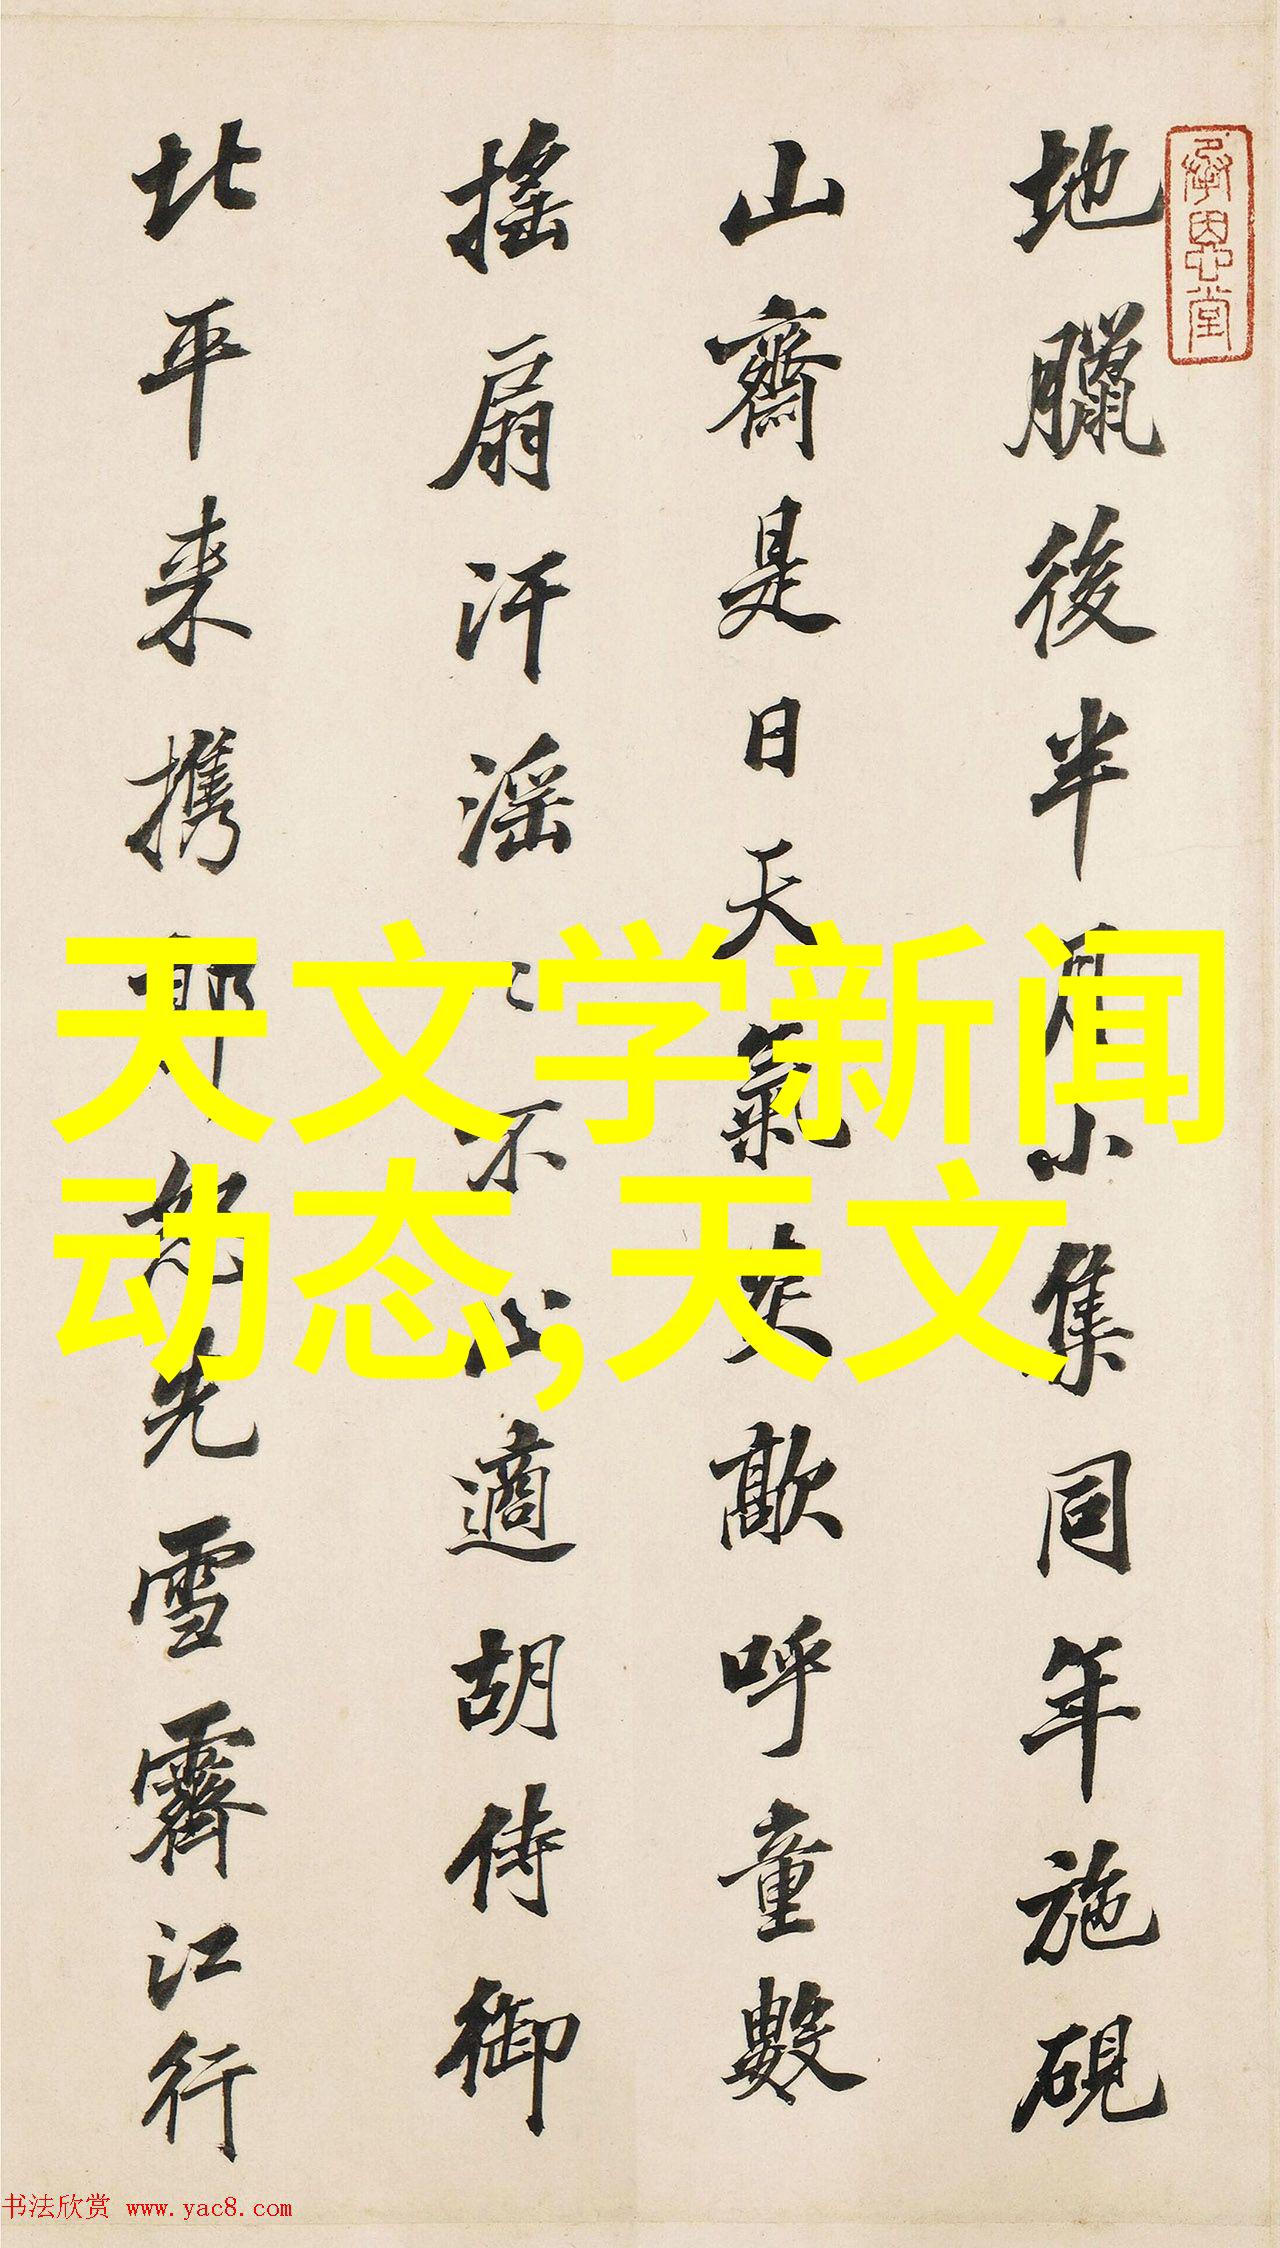 承恩堂
地臘後半月小集同年施硯
山齋是日天氣炎歊呼童數
搖扇汗滛〻不止適胡侍御
北平来携郭恕先雪霽江行
天文学新闻
动态,天文
书法欣赏 www.yac8.com